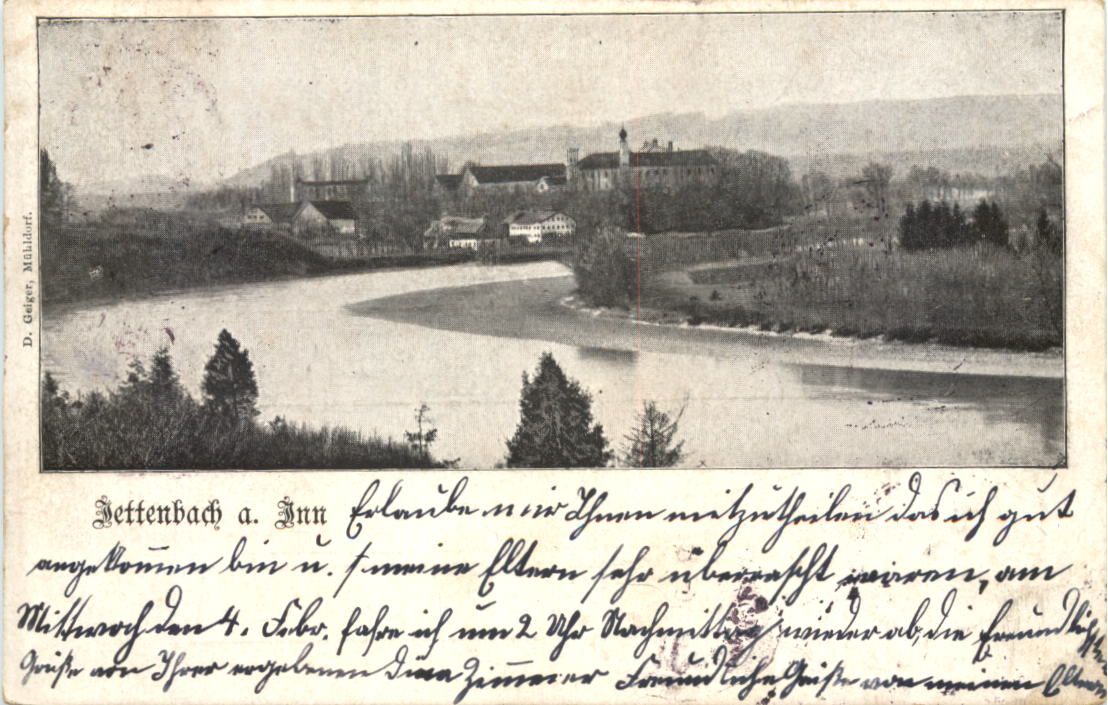 D. Geiger, Mühldorf.
Jettenbach a. Inn Erlaube mir Ihnen mitzutheilen das ich gut
angekommen bin u. meine Eltern sehr überrascht waren, am
Mittwoch den 4. Febr. fahre ich um 2 Uhr Nachmittag wieder ab, die freundlichsten
Grüße von Ihrer ergebenen Zimmerer Freundliche Grüße von meinen Eltern